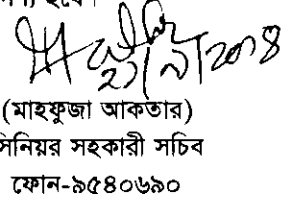 হবে।
২১/৯/২০১৪
(মাহফুজা আকতার)
সিনিয়র সহকারী সচিব
ফোন-৯৫৪০৬৯০